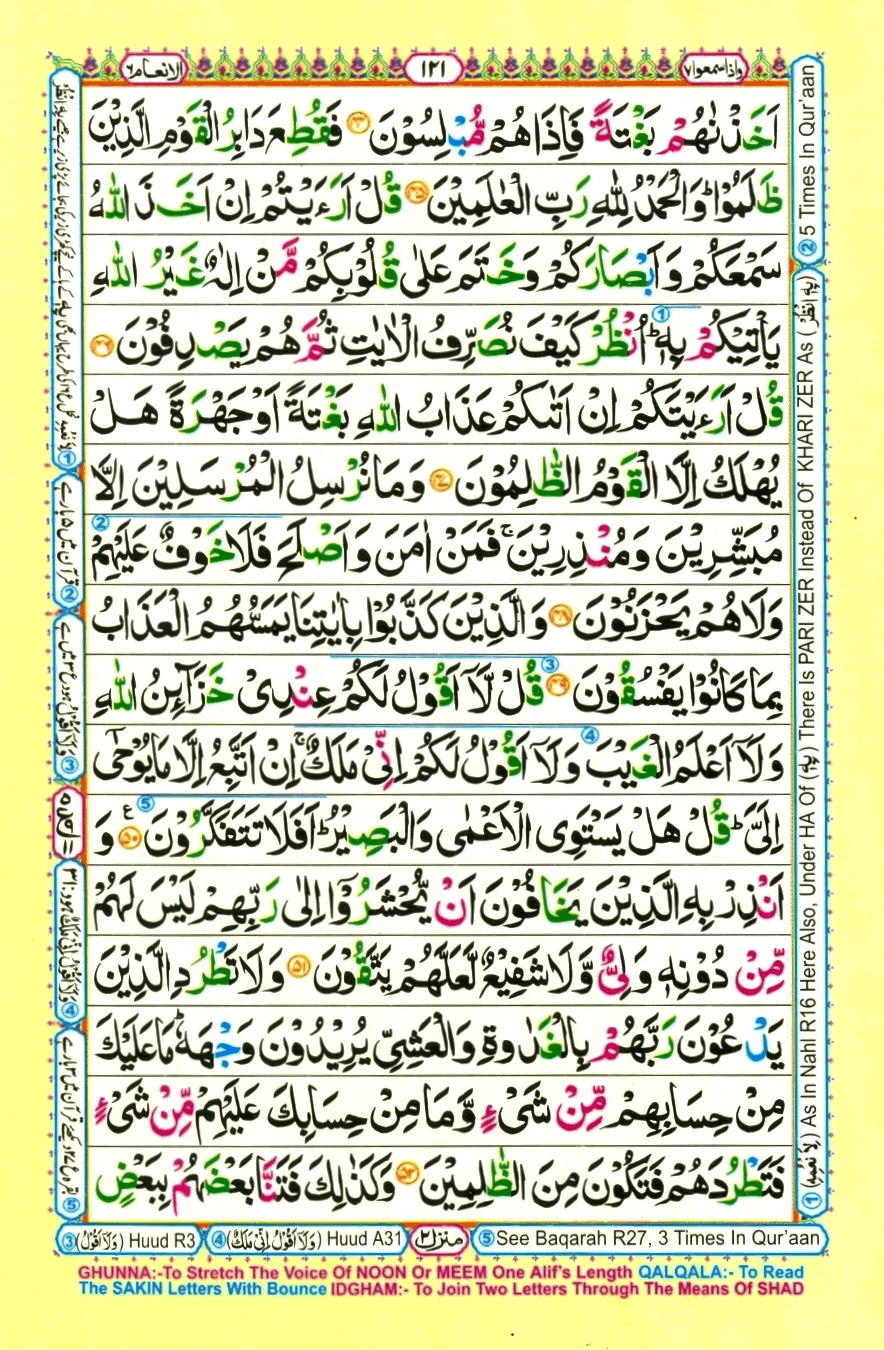 واذاسمعوا۷
۱۲۱
الانعام۶
اَخَذْنٰهُمْ بَغْتَةً فَاِذَا هُمْ مُّبْلِسُوْنَ ﴿۴۴﴾ فَقُطِعَ دَابِرُ الْقَوْمِ الَّذِيْنَ
ظَلَمُوْا ؕ وَالْحَمْدُ لِلّٰهِ رَبِّ الْعٰلَمِيْنَ ﴿۴۵﴾ قُلْ اَرَءَيْتُمْ اِنْ اَخَذَ اللّٰهُ
سَمْعَكُمْ وَاَبْصَارَكُمْ وَخَتَمَ عَلٰى قُلُوْبِكُمْ مَّنْ اِلٰهٌ غَيْرُ اللّٰهِ
يَاْتِيْكُمْ بِهٖ ؕ اُنْظُرْ كَيْفَ نُصَرِّفُ الْاٰيٰتِ ثُمَّ هُمْ يَصْدِفُوْنَ ﴿۴۶﴾
قُلْ اَرَءَيْتَكُمْ اِنْ اَتٰىكُمْ عَذَابُ اللّٰهِ بَغْتَةً اَوْ جَهْرَةً هَلْ
يُهْلَكُ اِلَّا الْقَوْمُ الظّٰلِمُوْنَ ﴿۴۷﴾ وَمَا نُرْسِلُ الْمُرْسَلِيْنَ اِلَّا
مُبَشِّرِيْنَ وَمُنْذِرِيْنَ ۚ فَمَنْ اٰمَنَ وَاَصْلَحَ فَلَا خَوْفٌ عَلَيْهِمْ
وَلَا هُمْ يَحْزَنُوْنَ ﴿۴۸﴾ وَالَّذِيْنَ كَذَّبُوْا بِاٰيٰتِنَا يَمَسُّهُمُ الْعَذَابُ
بِمَا كَانُوْا يَفْسُقُوْنَ ﴿۴۹﴾ قُلْ لَّاۤ اَقُوْلُ لَكُمْ عِنْدِىْ خَزَآئِنُ اللّٰهِ
وَلَاۤ اَعْلَمُ الْغَيْبَ وَلَاۤ اَقُوْلُ لَكُمْ اِنِّىْ مَلَكٌ ۚ اِنْ اَتَّبِعُ اِلَّا مَا يُوْحٰٓى
اِلَىَّ ؕ قُلْ هَلْ يَسْتَوِى الْاَعْمٰى وَالْبَصِيْرُ ؕ اَفَلَا تَتَفَكَّرُوْنَ ﴿۵۰﴾ ع وَ
اَنْذِرْ بِهِ الَّذِيْنَ يَخَافُوْنَ اَنْ يُّحْشَرُوْۤا اِلٰى رَبِّهِمْ لَيْسَ لَهُمْ
مِّنْ دُوْنِهٖ وَلِىٌّ وَّلَا شَفِيْعٌ لَّعَلَّهُمْ يَتَّقُوْنَ ﴿۵۱﴾ وَلَا تَطْرُدِ الَّذِيْنَ
يَدْعُوْنَ رَبَّهُمْ بِالْغَدٰوةِ وَالْعَشِىِّ يُرِيْدُوْنَ وَجْهَهٗ ؕ مَا عَلَيْكَ
مِنْ حِسَابِهِمْ مِّنْ شَىْءٍ وَّمَا مِنْ حِسَابِكَ عَلَيْهِمْ مِّنْ شَىْءٍ
فَتَطْرُدَهُمْ فَتَكُوْنَ مِنَ الظّٰلِمِيْنَ ﴿۵۲﴾ وَكَذٰلِكَ فَتَنَّا بَعْضَهُمْ بِبَعْضٍ
① (لَا نَعْبُدُ) As In Nahl R16 Here Also, Under HA Of (بِهٖ) There Is PARI ZER Instead Of KHARI ZER As (بِهِ انْظُرْ)
② 5 Times In Qur'aan
② قرآن میں ۵ بارہے
③ (وَلَاۤ اَقُوْلُ) Huud R3
④ (وَلَاۤ اَقُوْلُ اِنِّىْ مَلَكٌ) Huud A31
منزل۲
⑤ See Baqarah R27, 3 Times In Qur'aan
GHUNNA:-To Stretch The Voice Of NOON Or MEEM One Alif's Length QALQALA:- To Read
The SAKIN Letters With Bounce IDGHAM:- To Join Two Letters Through The Means Of SHAD